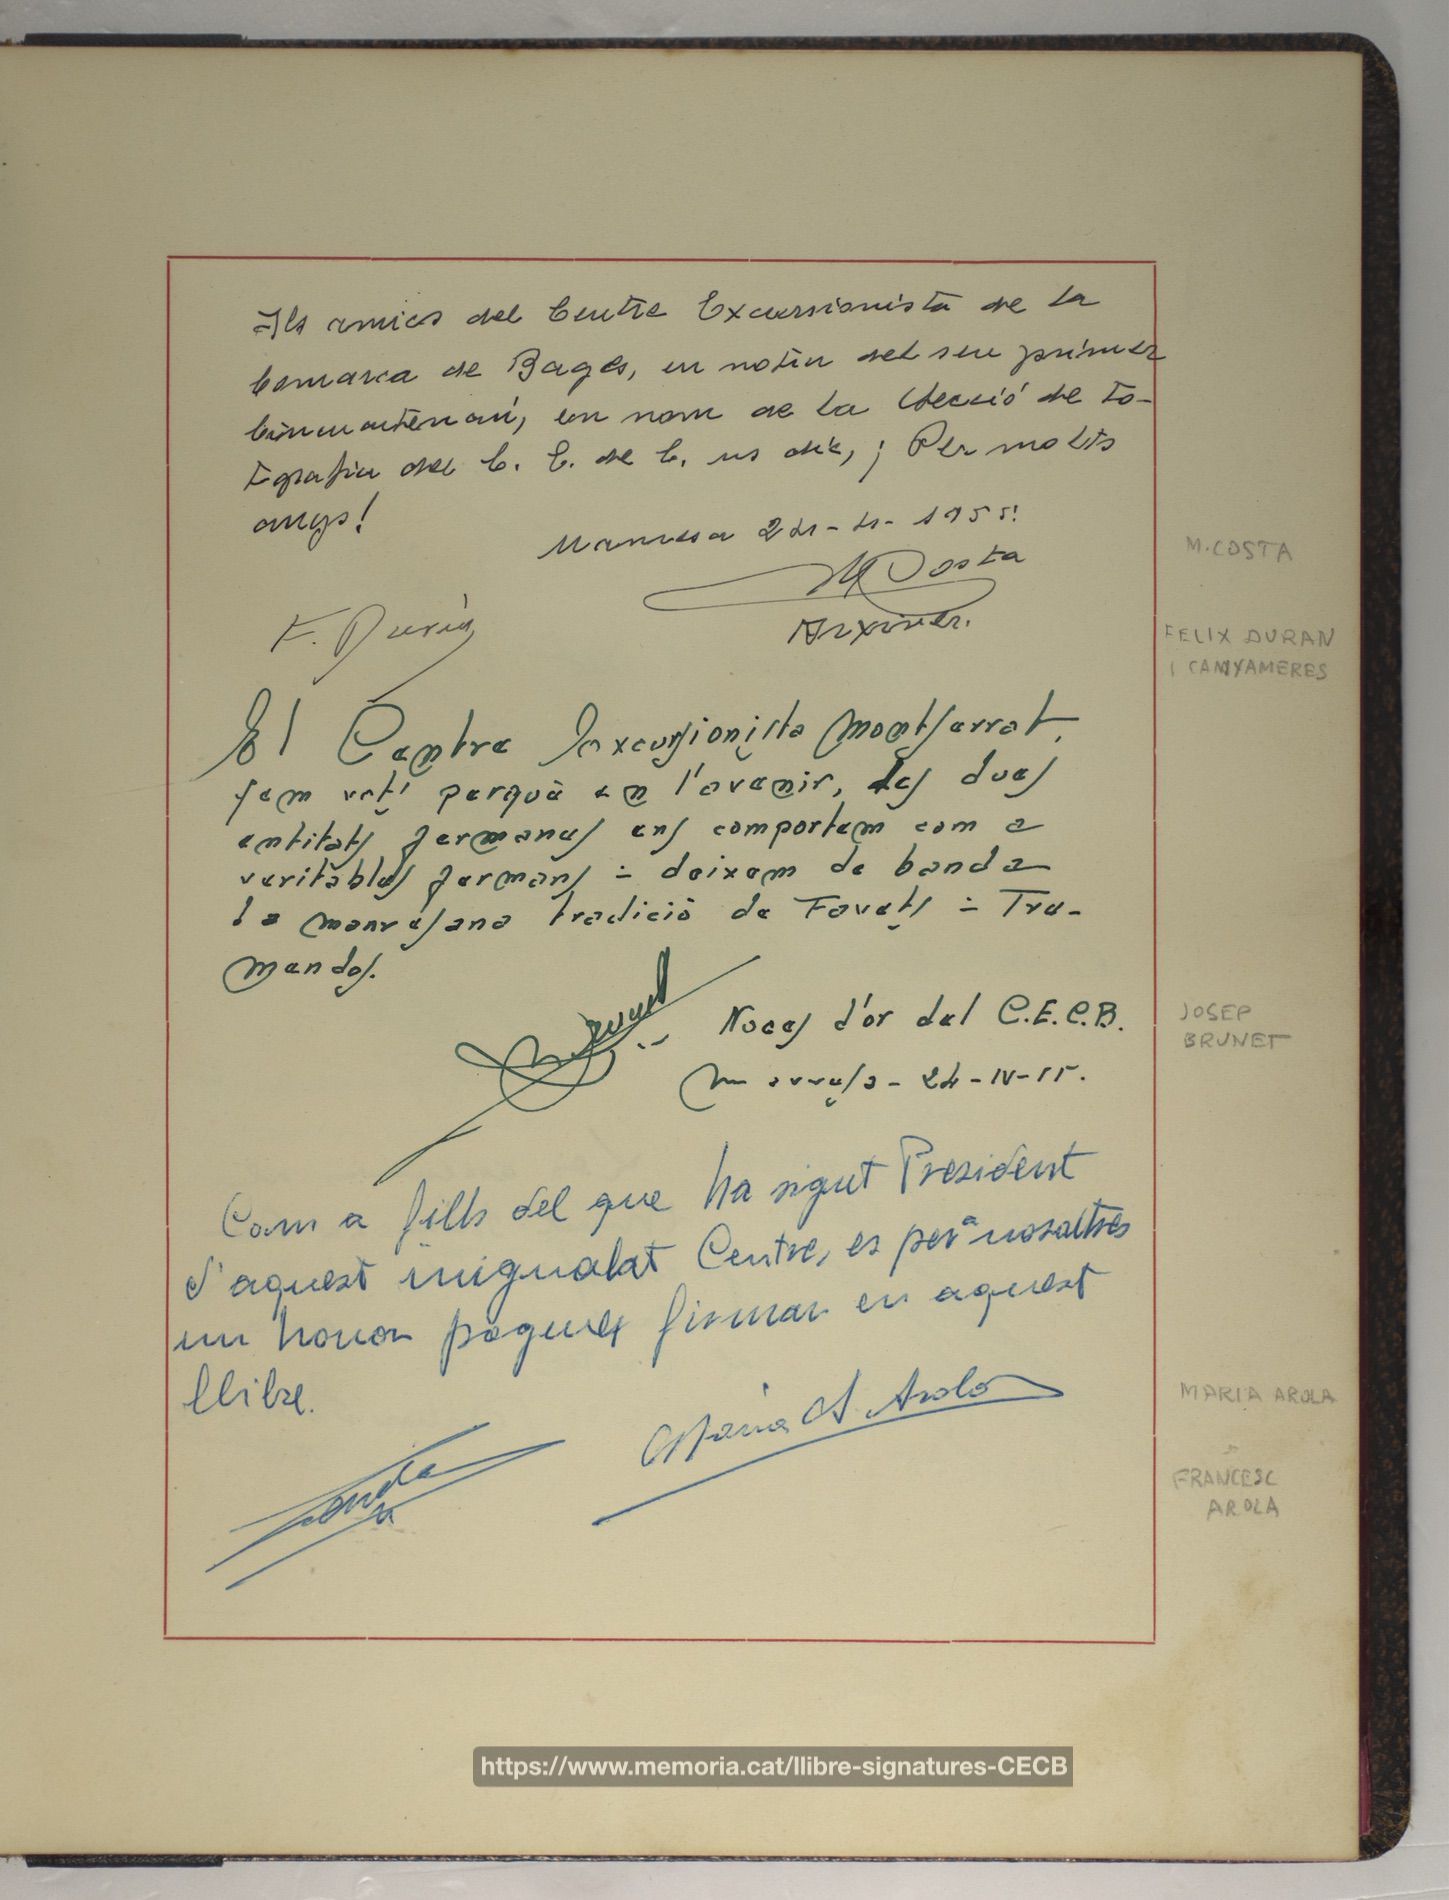 Als amics del Centre Excursionista de la
Comarca de Bages, en motiu del seu primer
Cincuantenari, en nom de la Secció de Fo-
tografia del C. E. de C. us diu, ¡Per molts
anys!
Manresa 24-4-1955.
M Costa
Arxiver.
M. COSTA
F. Duràn
FELIX DURAN
I CANYAMERES
El Centre Excursionista Montserrat,
fem vots perquè en l'avenir, les dues
entitats germanes ens comportem com a
veritables germans i deixem de banda
la manresana tradició de Favets i Tra-
mendos.
Brunet
Noces d'or del C.E.C.B.
Manresa - 24-IV-55.
JOSEP
BRUNET
Com a fills del que ha sigut President
d'aquest inigualat Centre, es per a nosaltres
un honor poguer firmar en aquest
llibre.
Maria A. Arola
MARIA AROLA
FRANCESC
AROLA
https://www.memoria.cat/llibre-signatures-CECB